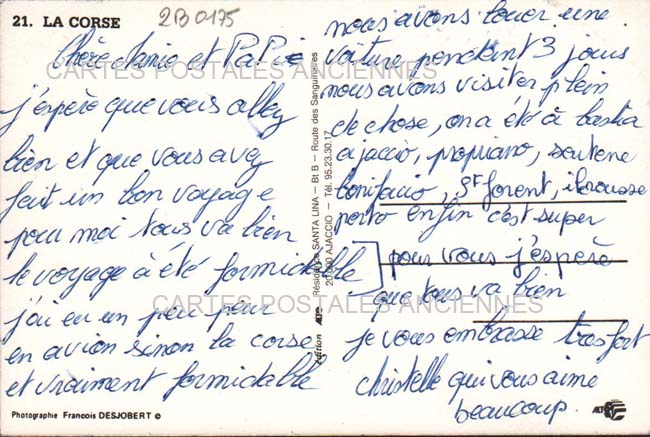 21. LA CORSE
2B0175
Chère Mamie et Papi
j'éspère que vous allez
bien et que vous avez
fait un bon voyage
pour moi tous va bien
le voyage à été formidable
j'ai eu un peu peur
en avion sinon la corse
et vraiment formidable
Photographie Francois DESJOBERT ©
Edition
Résidence SANTA LINA – Bt B – Route des Sanguinaires
20000 AJACCIO – Tél. 95.23.30.17
nous avons louer une
voiture pendant 3 jours
nous avons visiter plein
de chose, on a été à bastia
ajaccio, propriano, sartene
bonifacio, st florent, ilerousse
porto enfin c'est super
pour vous j'espère
que tous va bien
je vous embrasse tres fort
christelle qui vous aime
beaucoup.
CARTES POSTALES ANCIENNES
CARTES POSTALES ANCIENNES